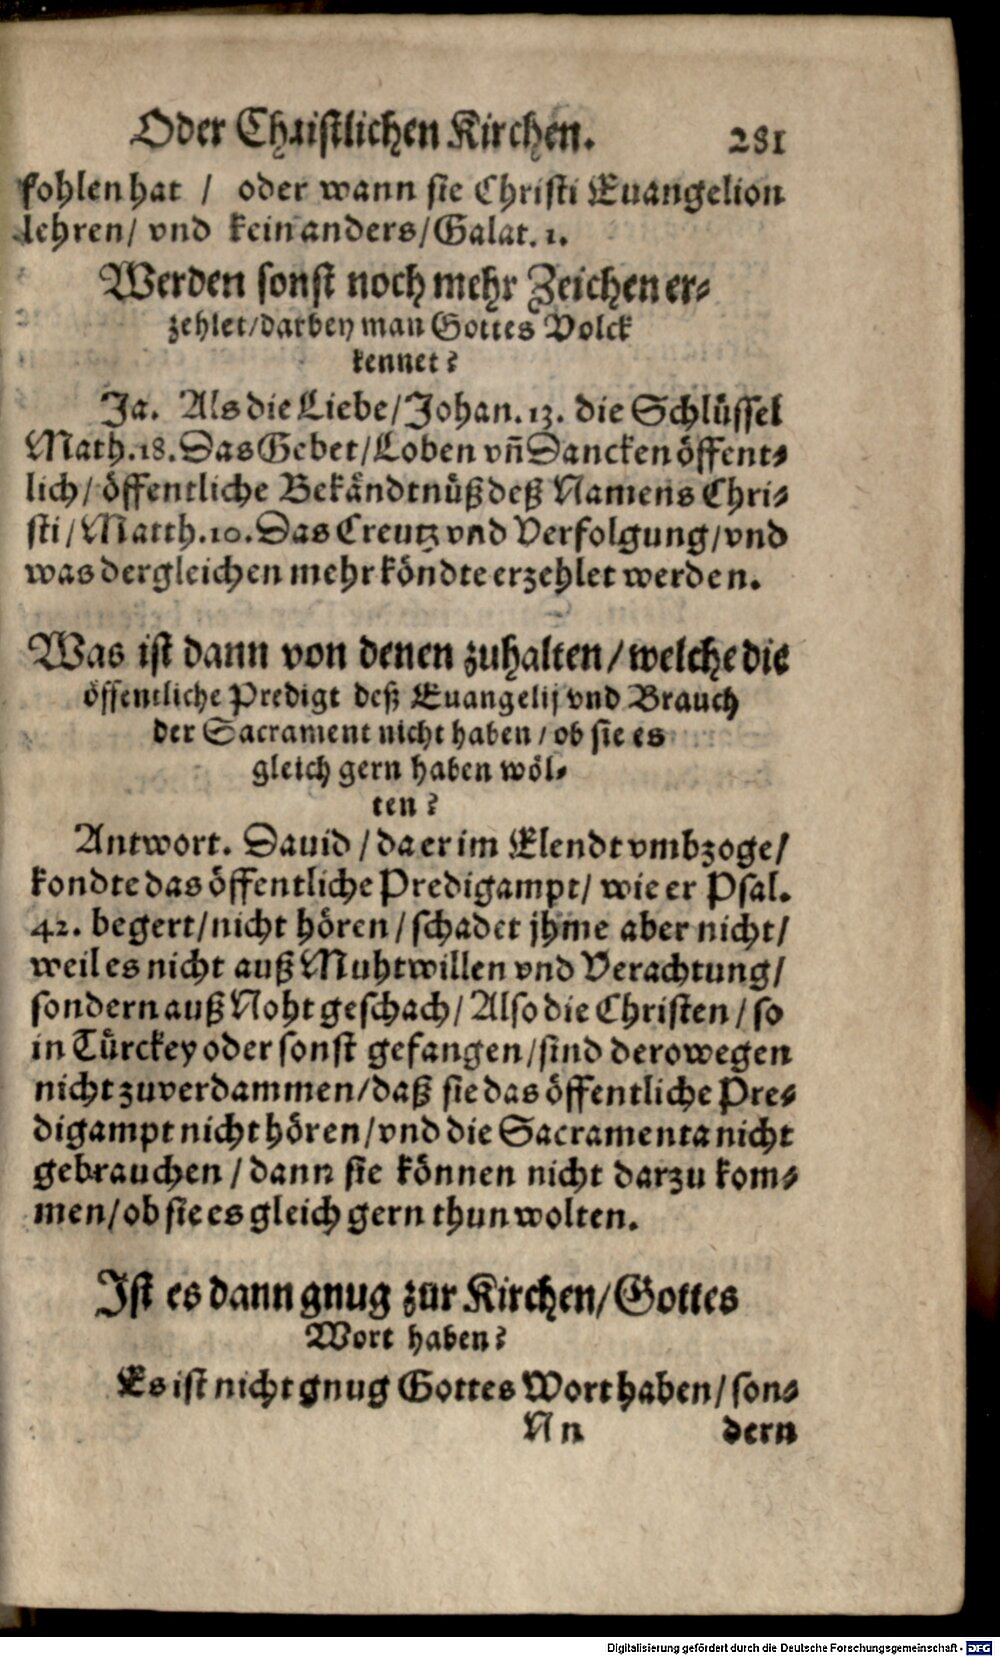 Oder Christlichen Kirchen. 281
fohlen hat / oder wann sie Christi Euangelion
lehren/ vnd kein anders/Galat. 1.
Werden sonst noch mehr Zeichen er⸗
zehlet/darbey man Gottes Volck
kennet?
Ja. Als die Liebe/Johan. 13. die Schlüssel
Math. 18. Das Gebet/Loben vñ Dancken öffent⸗
lich/ öffentliche Bekändtnüß deß Namens Chri⸗
sti/Matth. 10. Das Creutz vnd Verfolgung/vnd
was dergleichen mehr köndte erzehlet werden.
Was ist dann von denen zuhalten/welche die
öffentliche Predigt deß Euangelij vnd Brauch
der Sacrament nicht haben/ob sie es
gleich gern haben wöl⸗
ten?
Antwort. Dauid/da er im Elendt vmbzoge/
kondte das öffentliche Predigampt/ wie er Psal.
42. begert/nicht hören/schadet jhme aber nicht/
weil es nicht auß Muhtwillen vnd Verachtung/
sondern auß Noht geschach/Also die Christen/so
in Türckey oder sonst gefangen/sind derowegen
nicht zuverdammen/daß sie das öffentliche Pre⸗
digampt nicht hören/vnd die Sacramenta nicht
gebrauchen/dann sie können nicht darzu kom⸗
men/ob sie es gleich gern thun wolten.
Ist es dann gnug zur Kirchen/Gottes
Wort haben?
Es ist nicht gnug Gottes Wort haben/son⸗
Nn dern
Digitalisierung gefördert durch die Deutsche Forschungsgemeinschaft - DFG